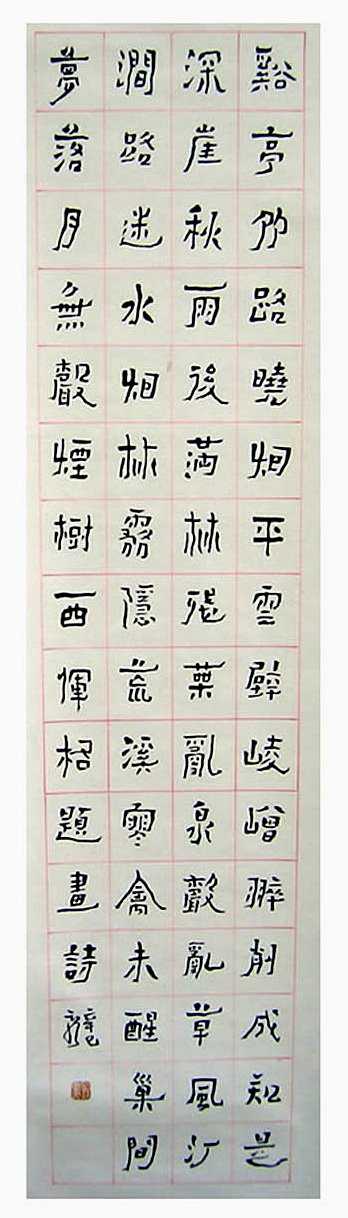 谿亭路曉烟平雲壁崚嶒翠削成知是
深崖秋雨後滿林殘葉亂泉聲亂草風汀
澗路迷水烟林霧隱荒溪寒禽未醒巢間
夢落月無聲煙樹西惲格題畫詩